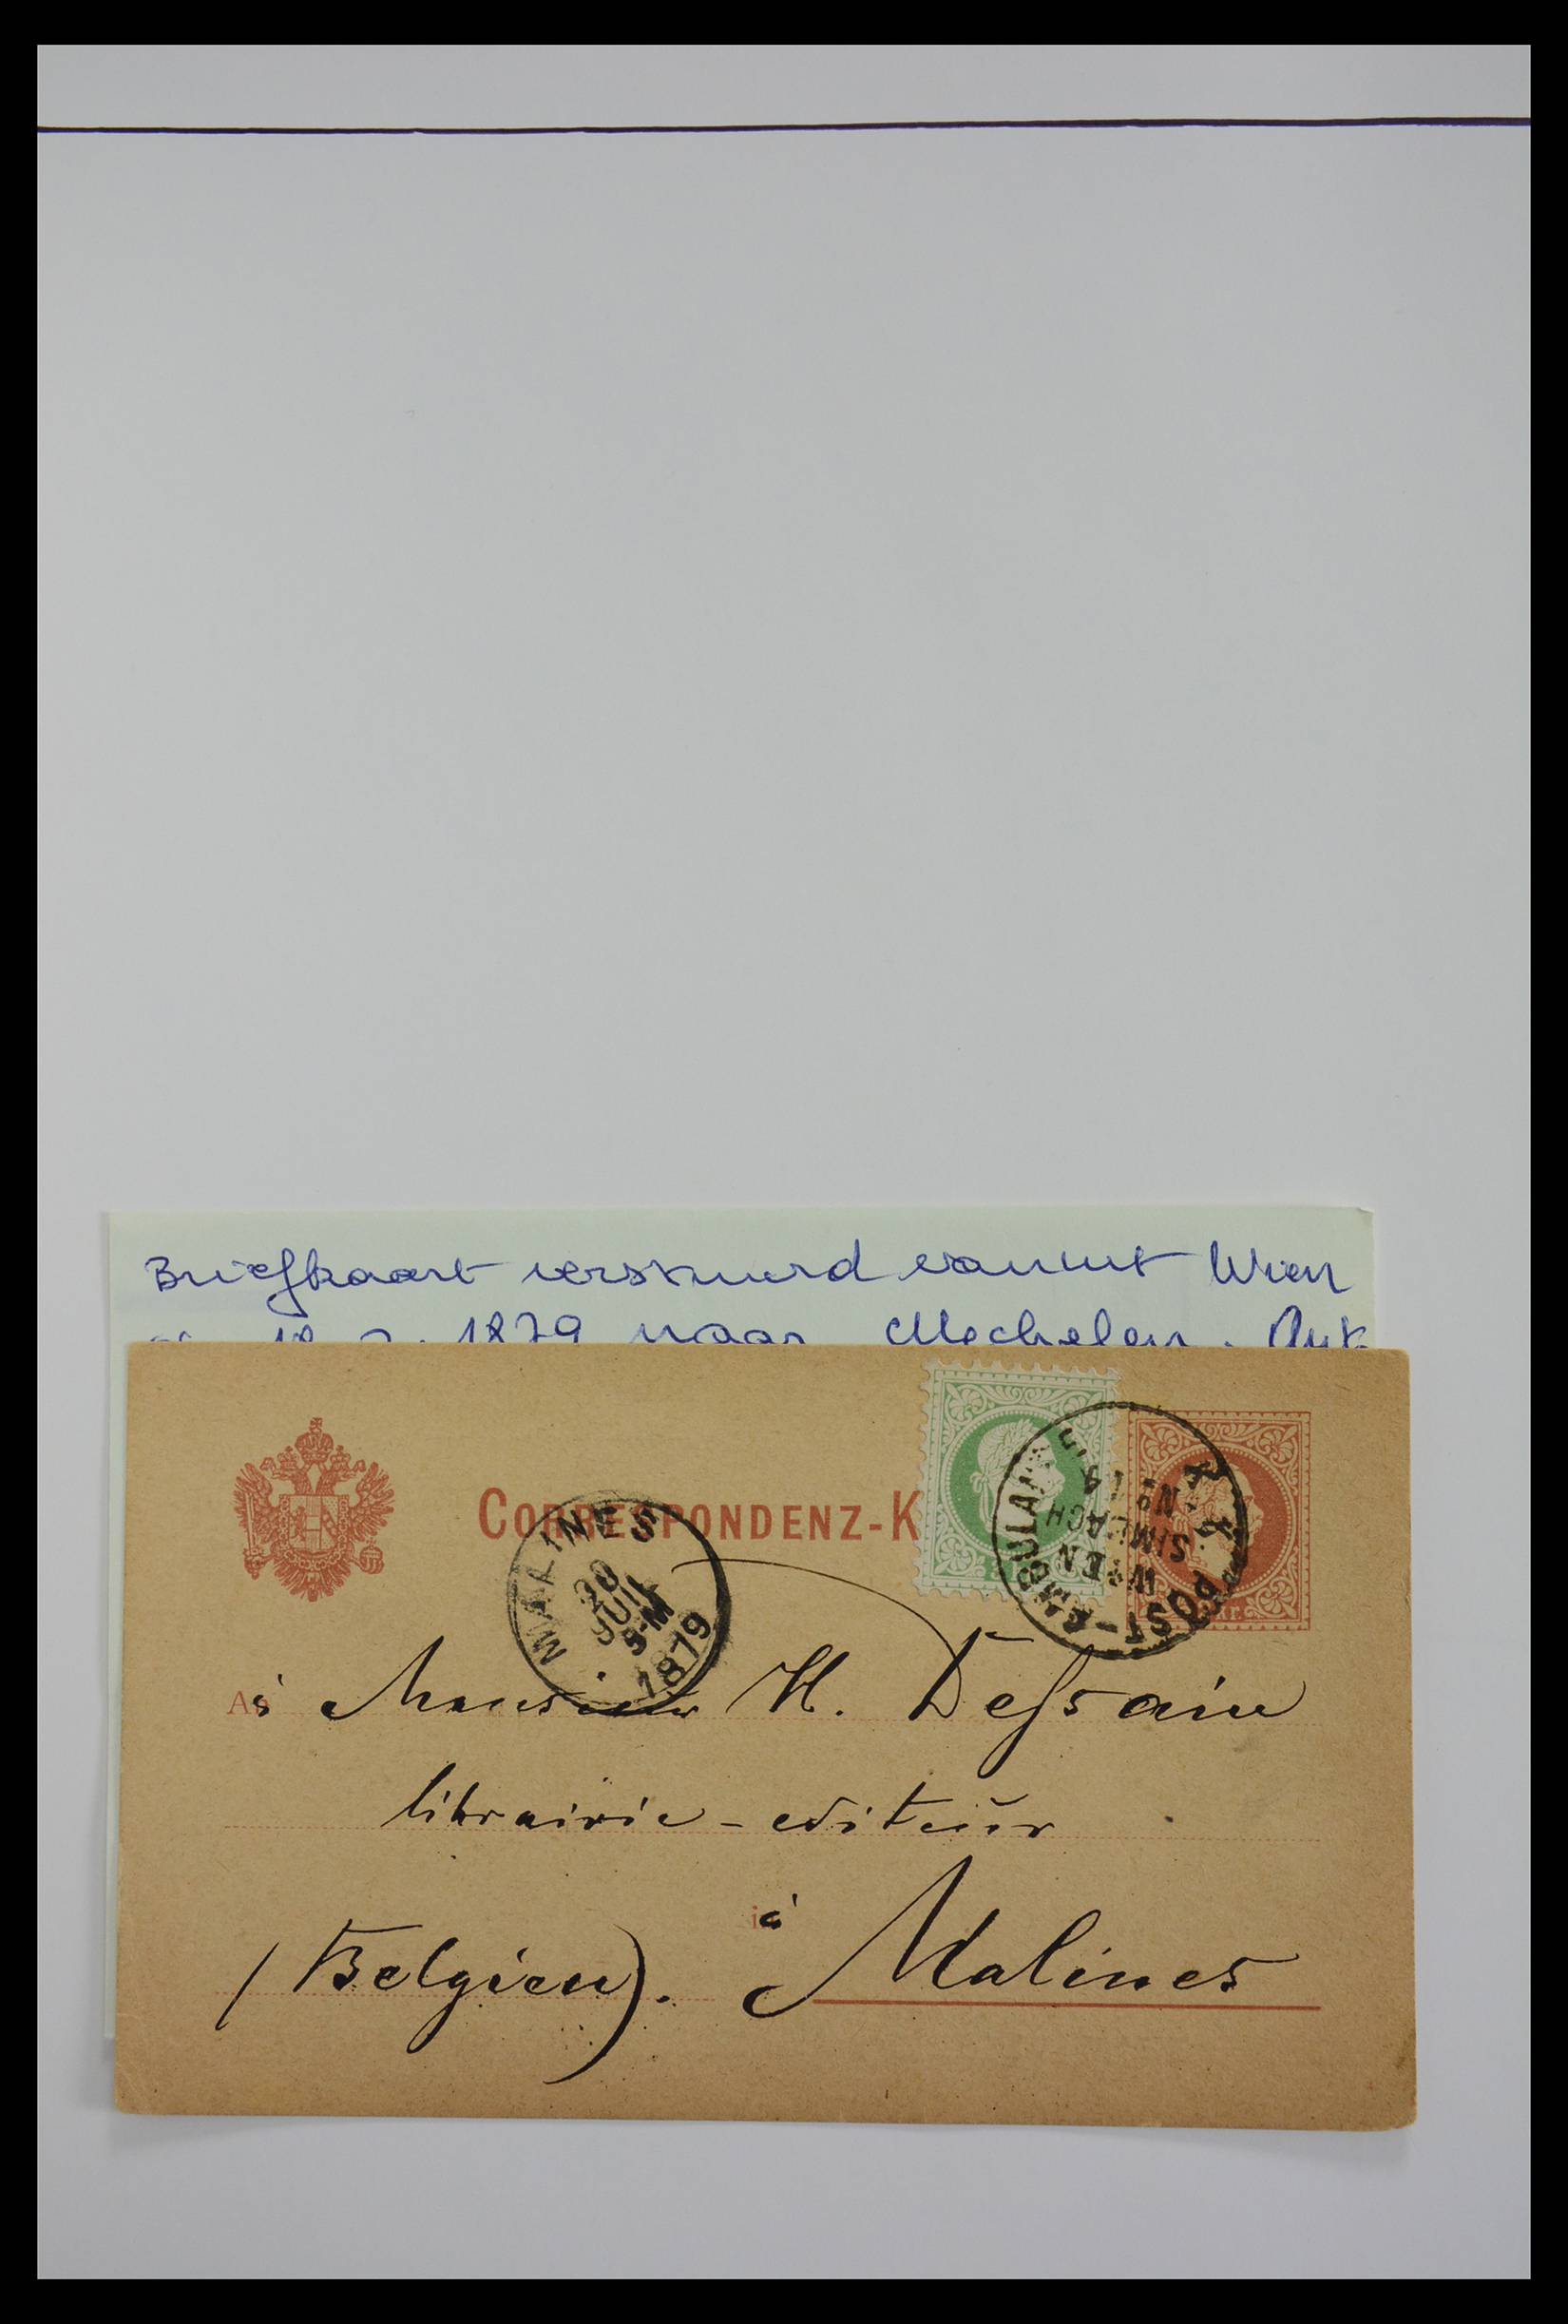 Briefkaart verstuurd vanuit Wien
1879 naar Mechelen. Ank
CORRESPONDENZ-K
MALINES
20
JUIL
1879
K. K. POST-AMBULANCE
WIEN
SIMBACH
No 14
à Monsieur H. Dessain
librairie-editeur
à Malines
(Belgien).